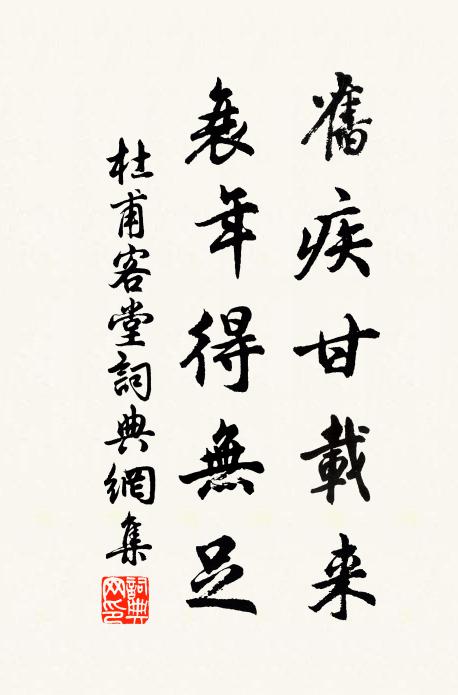 舊疾甘載来
衰年得無足
杜甫客堂詞典網集
詞典网印